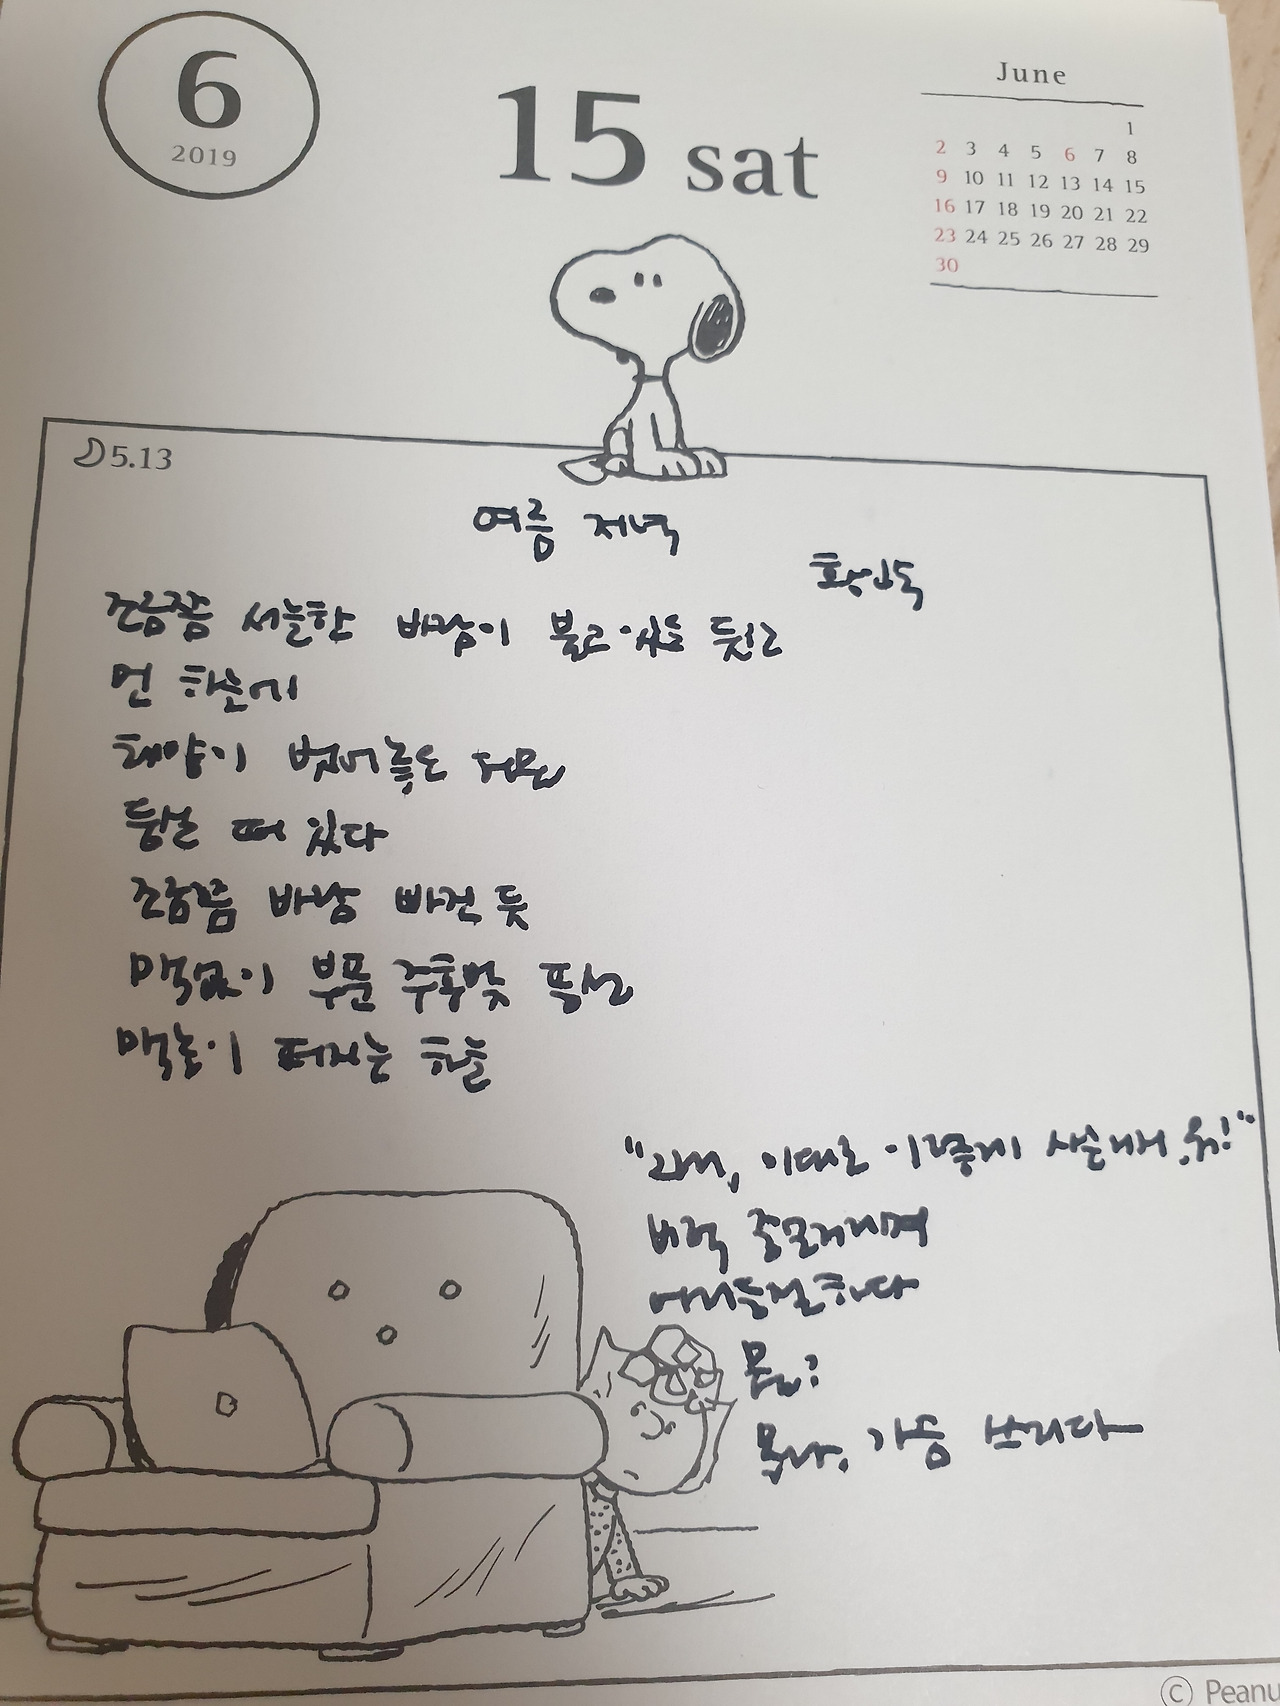 6
2019
15 sat
June
1
2 3 4 5 6 7 8
9 10 11 12 13 14 15
16 17 18 19 20 21 22
23 24 25 26 27 28 29
30
5.13
여름 저녁
황인숙
조금쯤 서늘한 바람이 불고 있는 듯하고
먼 하늘에
태양이 벗어놓은 허물
둥실 떠 있다
조금쯤 바람 빠진 듯
맥없이 부푼 주홍빛 풍선
맥놀이 퍼지는 하늘
"그래, 이대로 이렇게
버럭
몸은?
몸이나,
© Peanu